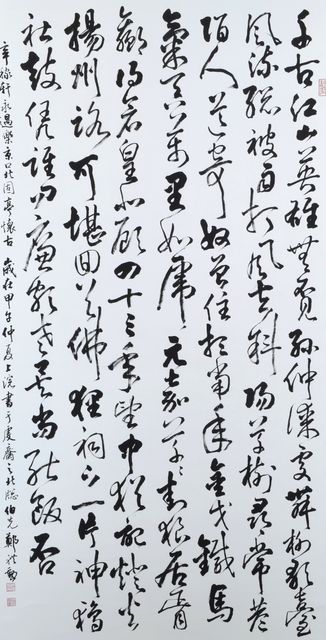 千古江山英雄無覓孫仲謀處舞榭歌臺
風流總被雨打風吹去斜陽草樹尋常巷
陌人道寄奴曾住想當年金戈鐵馬
氣吞萬里如虎元嘉草草封狼居胥
贏得倉皇北顧四十三年望中猶記燈火
揚州路可堪回首佛狸祠下一片神鴉
社鼓憑誰問廉頗老矣尚能飯否
辛稼軒永遇樂京口北固亭懷古 歲在甲午仲夏上浣書于虔齋之北牕 伯 鄭